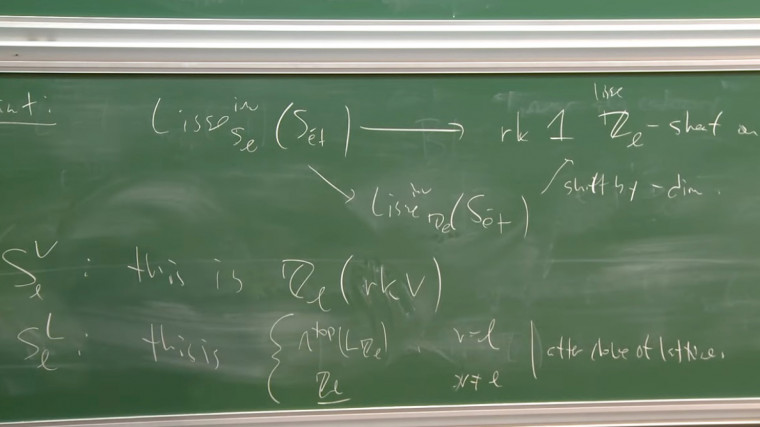 int:
Lisse^{inv}_{S_ℓ}(S_ét) ⟶ rk 1 lisse ℤ_ℓ-sheaf on
Lisse^{inv}_{ℤ_ℓ}(S_ét) shift by -dim.
S_ℓ^V : this is ℤ_ℓ(rk V)
S_ℓ^L : this is { Λ^{top}(L_{ℤ_ℓ}) , v=ℓ
ℤ_ℓ v≠ℓ | after of lattice.